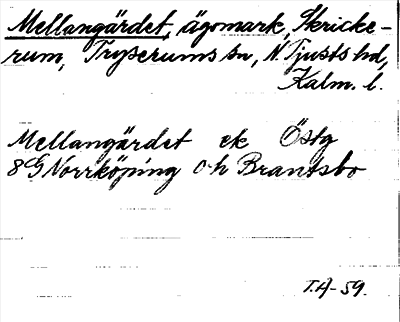 Mellangärdet, ägomark, Skricke-
rum, Tryserums sn, N. Tjusts hd,
Kalm. l.
Mellangärdet ek Östg
8G Norrköping och Brantsbo
T.A-59.